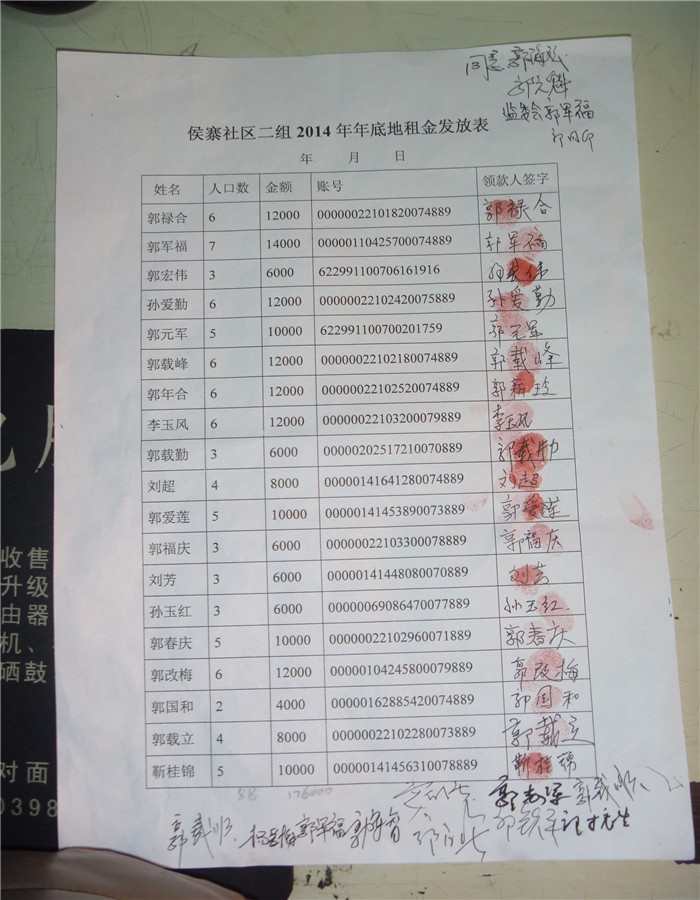 同意 郭海彬
监委会郭军福
侯寨社区二组 2014 年年底地租金发放表
年 月 日
姓名 人口数 金额 账号 领款人签字
郭禄合 6 12000 00000022101820074889 郭禄合
郭军福 7 14000 00000110425700074889 郭军福
郭宏伟 3 6000 622991100706161916
孙爱勤 6 12000 00000022102420075889 孙爱勤
郭元军 5 10000 622991100700201759 郭元军
郭载峰 6 12000 00000022102180074889 郭载峰
郭年合 6 12000 00000022102520074889 郭新玫
李玉风 6 12000 00000022103200079889 李玉风
郭载勤 3 6000 00000202517210070889 郭载勤
刘超 4 8000 00000141641280074889 刘超
郭爱莲 5 10000 00000141453890073889 郭爱莲
郭福庆 3 6000 00000022103300078889 郭福庆
刘芳 3 6000 00000141448080070889 刘芳
孙玉红 3 6000 00000069086470077889 孙玉红
郭春庆 5 10000 00000022102960071889 郭春庆
郭改梅 6 12000 00000104245800079889 郭改梅
郭国和 2 4000 00000162885420074889 郭国和
郭载立 4 8000 00000022102280073889 郭载立
靳桂锦 5 10000 00000141456310078889 靳桂锦
88 176000
郭载顺 郭军福
收售
升级
由器
机、
硒鼓
对面
0398